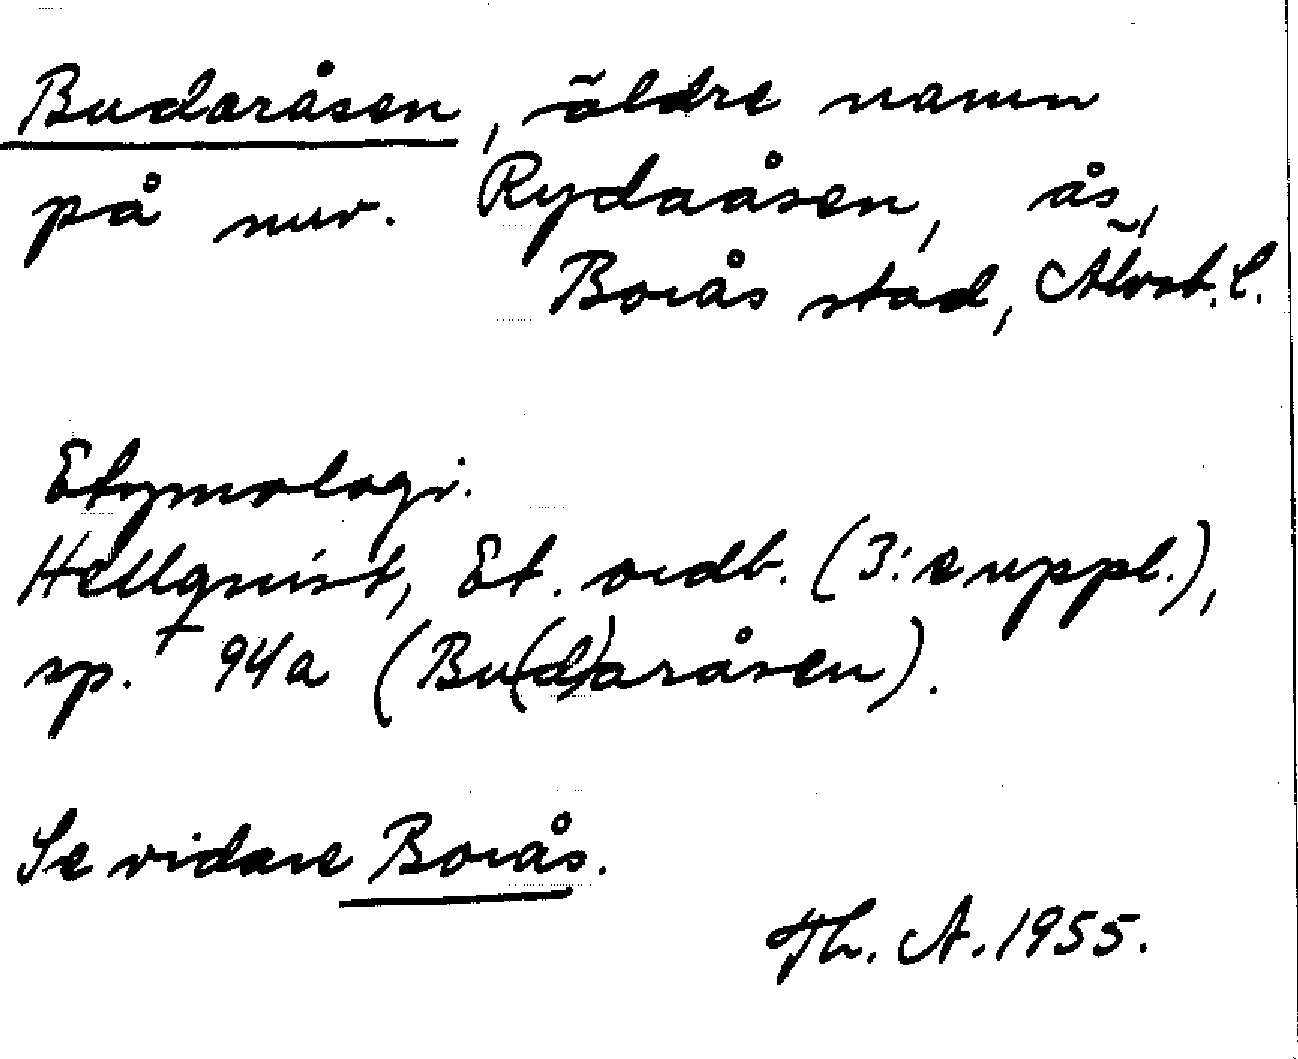 Budaråsen, äldre namn
på nuv. Rydaåsen, ås,
Borås stad, Älvsb. l.
Etymologi.
Hellquist, Et. ordb. (3:e uppl.),
sp. 94a (Bu(d)aråsen).
Se vidare Borås.
Th. A. 1955.